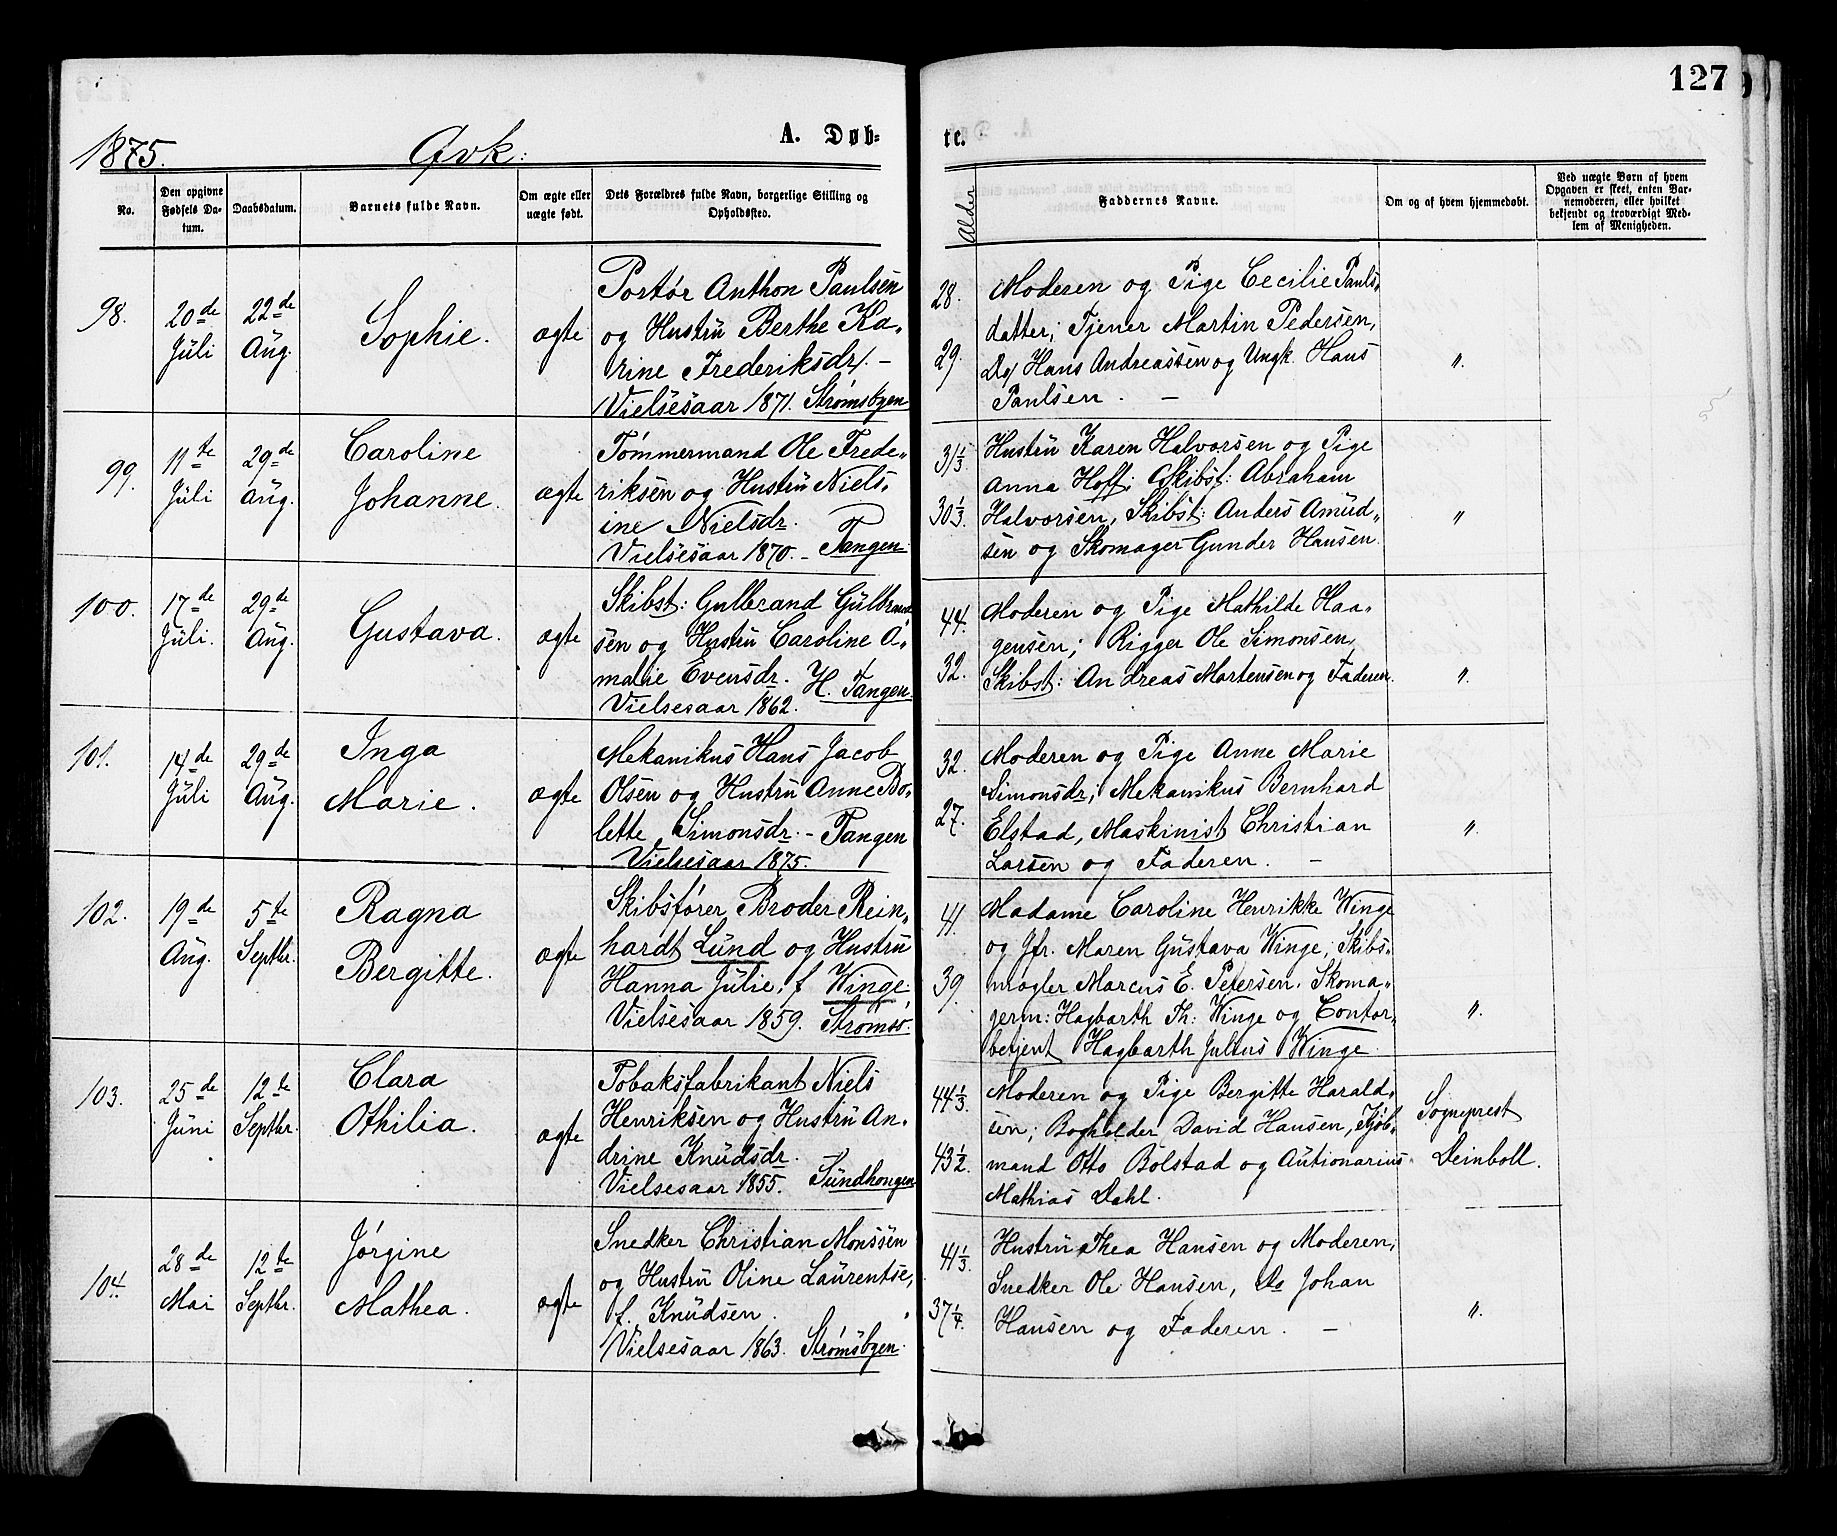 127
1875.
Qvk:
A. Døb-
te.
No.
Den opgivne
Fødsels Da-
tum.
Daabsdatum.
Barnets fulde Navn.
Om ægte eller
uægte født.
Dets Forældres fulde Navn, borgerlige Stilling og
Opholdssted.
Alder
Faddernes Navne.
Om og af hvem hjemmedøbt.
Ved uægte Børn af hvem
Opgaven er skeet, enten Bar-
nemoderen, eller hvilket
bekjendt og troværdigt Med-
lem af Menigheden.
98.
20de
Juli
22de
Aug.
Sophie.
ægte
Portør Anthon Paulsen
og Hustru Berthe Ka-
rine Frederiksdr. –
Vielsesaar 1871. Strømsbyen
28.
29.
Moderen og Pige Cecilie Pauls-
datter; Tjener Martin Pedersen,
Do Hans Andreassen og Ungk. Hans
Paulsen. –
"
99.
11te
Juli
29de
Aug.
Caroline
Johanne.
ægte
Tømmermand Ole Frede-
riksen og Hustru Niels-
ine Nielsdr.
Vielsesaar 1870. – Tangen.
31 1/3
30 1/3
Hustru Karen Halvorsen og Pige
Anna Hoff; Skibst: Abraham
Halvorsen, Skibst: Anders Amud-
sen og Skomager Gunder Hansen.
"
100.
17de
Juli.
29de
Aug.
Gustava.
ægte
Skibst: Gulbrand Gulbrand-
sen og Hustru Caroline A-
malie Evensdr. H. Tangen.
Vielsesaar 1862.
44.
32.
Moderen og Pige Mathilde Haa-
gensen; Rigger Ole Simonsen,
Skibst: Andreas Martensen og Faderen.
"
101.
14de
Juli
29de
Aug.
Inga
Marie.
ægte
Mekanikus Hans Jacob
Olsen og Hustru Anne Bo-
lette Simonsdr. – Tangen
Vielsesaar 1875.
32.
27.
Moderen og Pige Anne Marie
Simonsdr; Mekanikus Bernhard
Elstad, Maskinist Christian
Larsen og Faderen. –
"
102.
19de
Aug.
5te
Septbr.
Ragna
Bergitte.
ægte
Skibsfører Broder Rein-
hardt Lund og Hustru
Hanna Julie, f. Winge.
Vielsesaar 1859. Strømsø.
41.
39.
Madame Caroline Henrikke Winge
og Jfr. Maren Gustava Winge; Skibs-
mægler Marcus E. Petersen, Skoma-
germ: Hagbarth Th: Winge og Contor-
betjent Hagbarth Julius Winge.
"
103.
25de
Juni
12te
Septbr.
Clara
Othilia.
ægte
Tobaksfabrikant Niels
Henriksen og Hustru An-
drine Knudsdr.
Vielsesaar 1855. Sundhougen
44 1/3
43 1/2
Moderen og Pige Bergitte Harald-
sen; Bogholder David Hansen, Kjøb-
mand Otto Bolstad og Autionarius
Mathias Dahl.
Sogneprest
Deinboll.
104.
28de
Mai
12te
Septbr.
Jørgine
Mathea.
ægte
Snedker Christian Monssen
og Hustru Oline Laurentse,
f. Knudsen.
Vielsesaar 1863. Strømsbyen.
41 1/3
37 1/4.
Hustru Thea Hansen og Moderen,
Snedker Ole Hansen, Do Johan
Hansen og Faderen. –
"